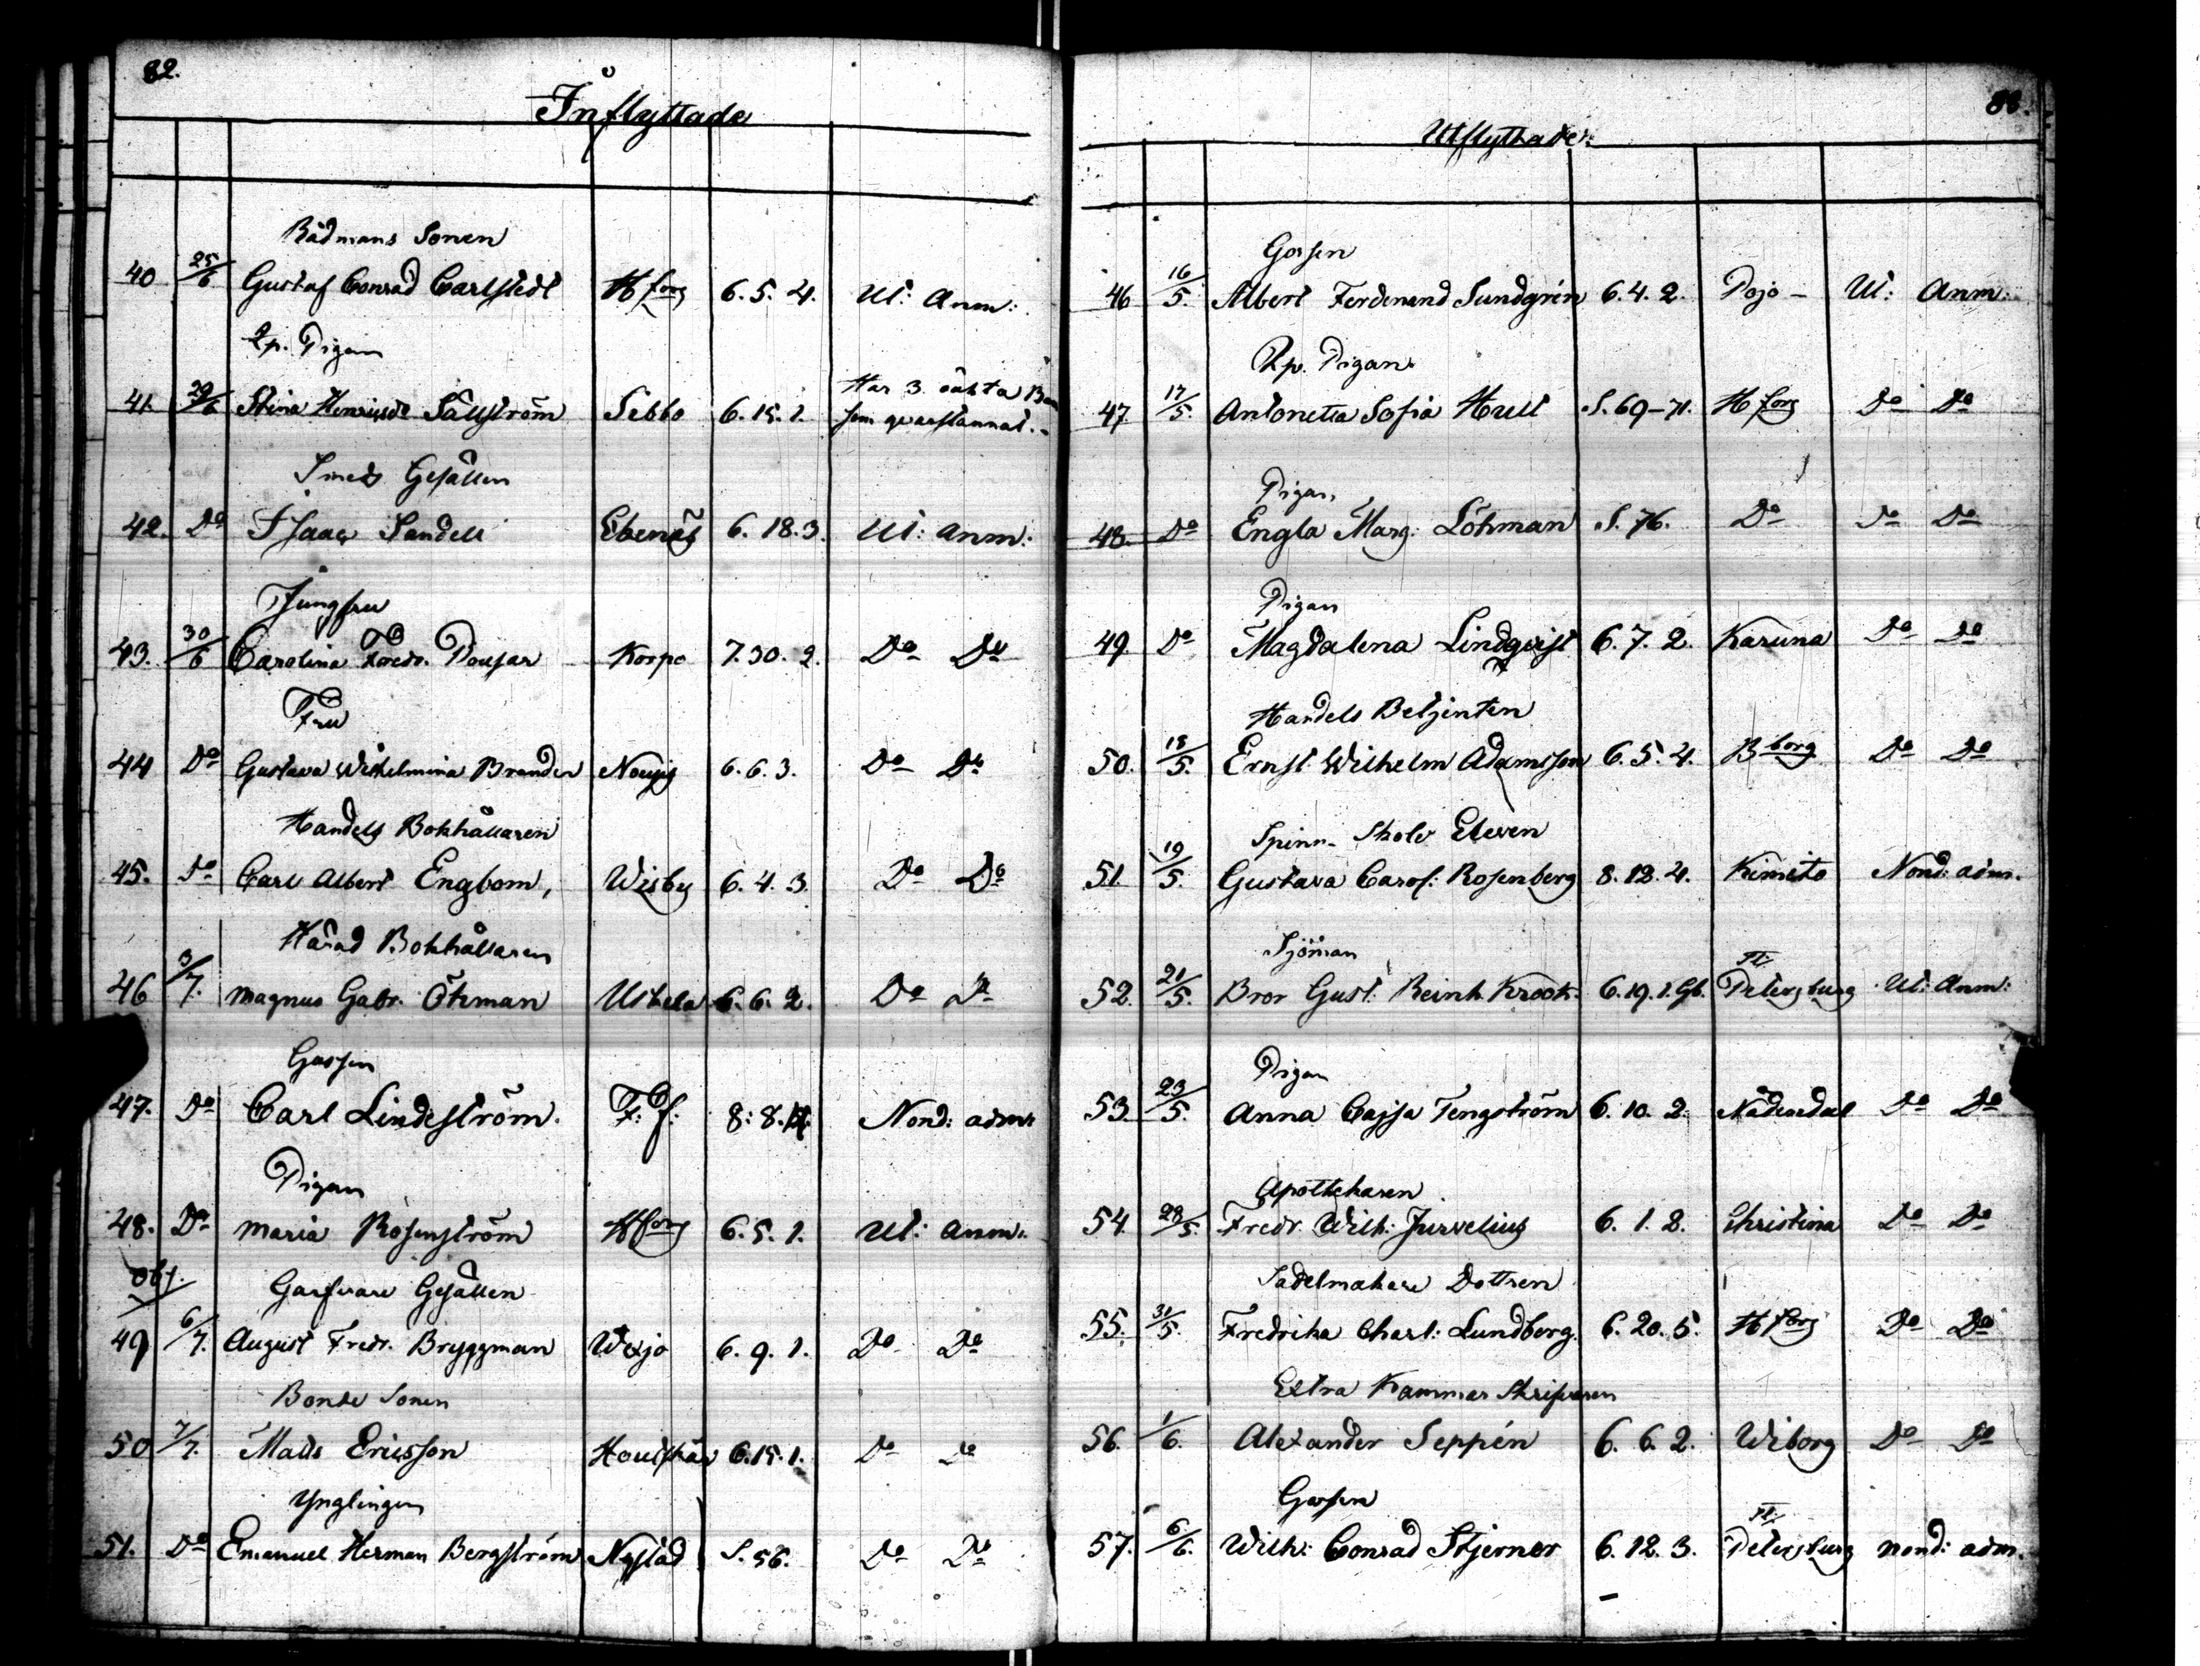 82.
Inflyttade
Rådmans Sonen
40 25/6 Gustaf Conrad Carlstedt H fors 6. 5. 4. Ut: Anm:
Qp. Pigan
41. 29/6 Stina Henricsdr Sällström Sebbo 6. 15. 1. Har 3. oäkta Barn
som qvarstannat.
Smeds Gesällen
42. Do Isaac Sandell Ekenäs 6. 18. 3. Ut: anm:
Jungfru
43. 30/6 Carolina Fredr. Pousar Korpo 7. 30. 2. Do Do
Fru
44 Do Gustava Wilhelmina Brander Nousis 6. 6. 3. Do Do
Handels Bokhållaren
45. Do Carl Albert Engbom, Wisby 6. 4. 3. Do Do
Härad Bokhållaren
46 3/7. Magnus Gabr. Öhman Uskela 6. 6. 2. Do Do
Gossen
47. Do Carl Lindeström. F. f. 8: 8. Nond: adm:
Pigan
48. Do Maria Rosenström Hfors 6. 5. 1. Ut: anm.
obs.
Garfvare Gesällen
49 6/7. August Fredr. Bryggman Wexjo 6. 9. 1. Do Do
Bonde Sonen
50 7/7. Matts Ericsson Houtskär 6. 15. 1. Do Do
Ynglingen
51. Do Emanuel Herman Bergström Nystad S. 56. Do Do
83.
Utflyttade.
Gossen
46 16/5. Albert Ferdinand Sundgrén 6. 4. 2. Pojo – Ut: Anm:
Qp. Pigan
47. 17/5. Antonetta Sofia Hull S. 69–71. H fors Do Do
Pigan,
48. Do Engla Marg: Löhman S. 76. Do Do Do
Pigan
49 Do Magdalena Lindqvist 6. 7. 2. Karuna Do Do
Handels Betjenten
50. 18/5. Ernst Wilhelm Adamsson 6. 5. 4. B borg Do Do
Spinn Skole Eleven
51. 19/5. Gustava Carol: Rosenberg 8. 12. 4. Kimito Nond: adm.
Sjöman
52. 21/5. Bror Gust. Reinh. Krook. 6. 19. 1. Gb. St: Petersburg Ut: Anm:
Pigan
53. 23/5. Anna Cajsa Tengström 6. 10. 2. Nådendal Do Do
Apothekaren
54. 28/5. Fredr. Wilh: Jurvelius 6. 1. 2. Christina Do Do
Sadelmakare Dottren
55. 31/5. Fredrika Charl: Lundberg. 6. 20. 5. H fors Do Do
Extra Kammar Skrifvaren
56. 1/6. Alexander Seppén 6. 6. 2. Wiborg Do Do
Gossen
57. 6/6. Wilh: Conrad Stjerner 6. 12. 3. St: Petersburg nond: adm.